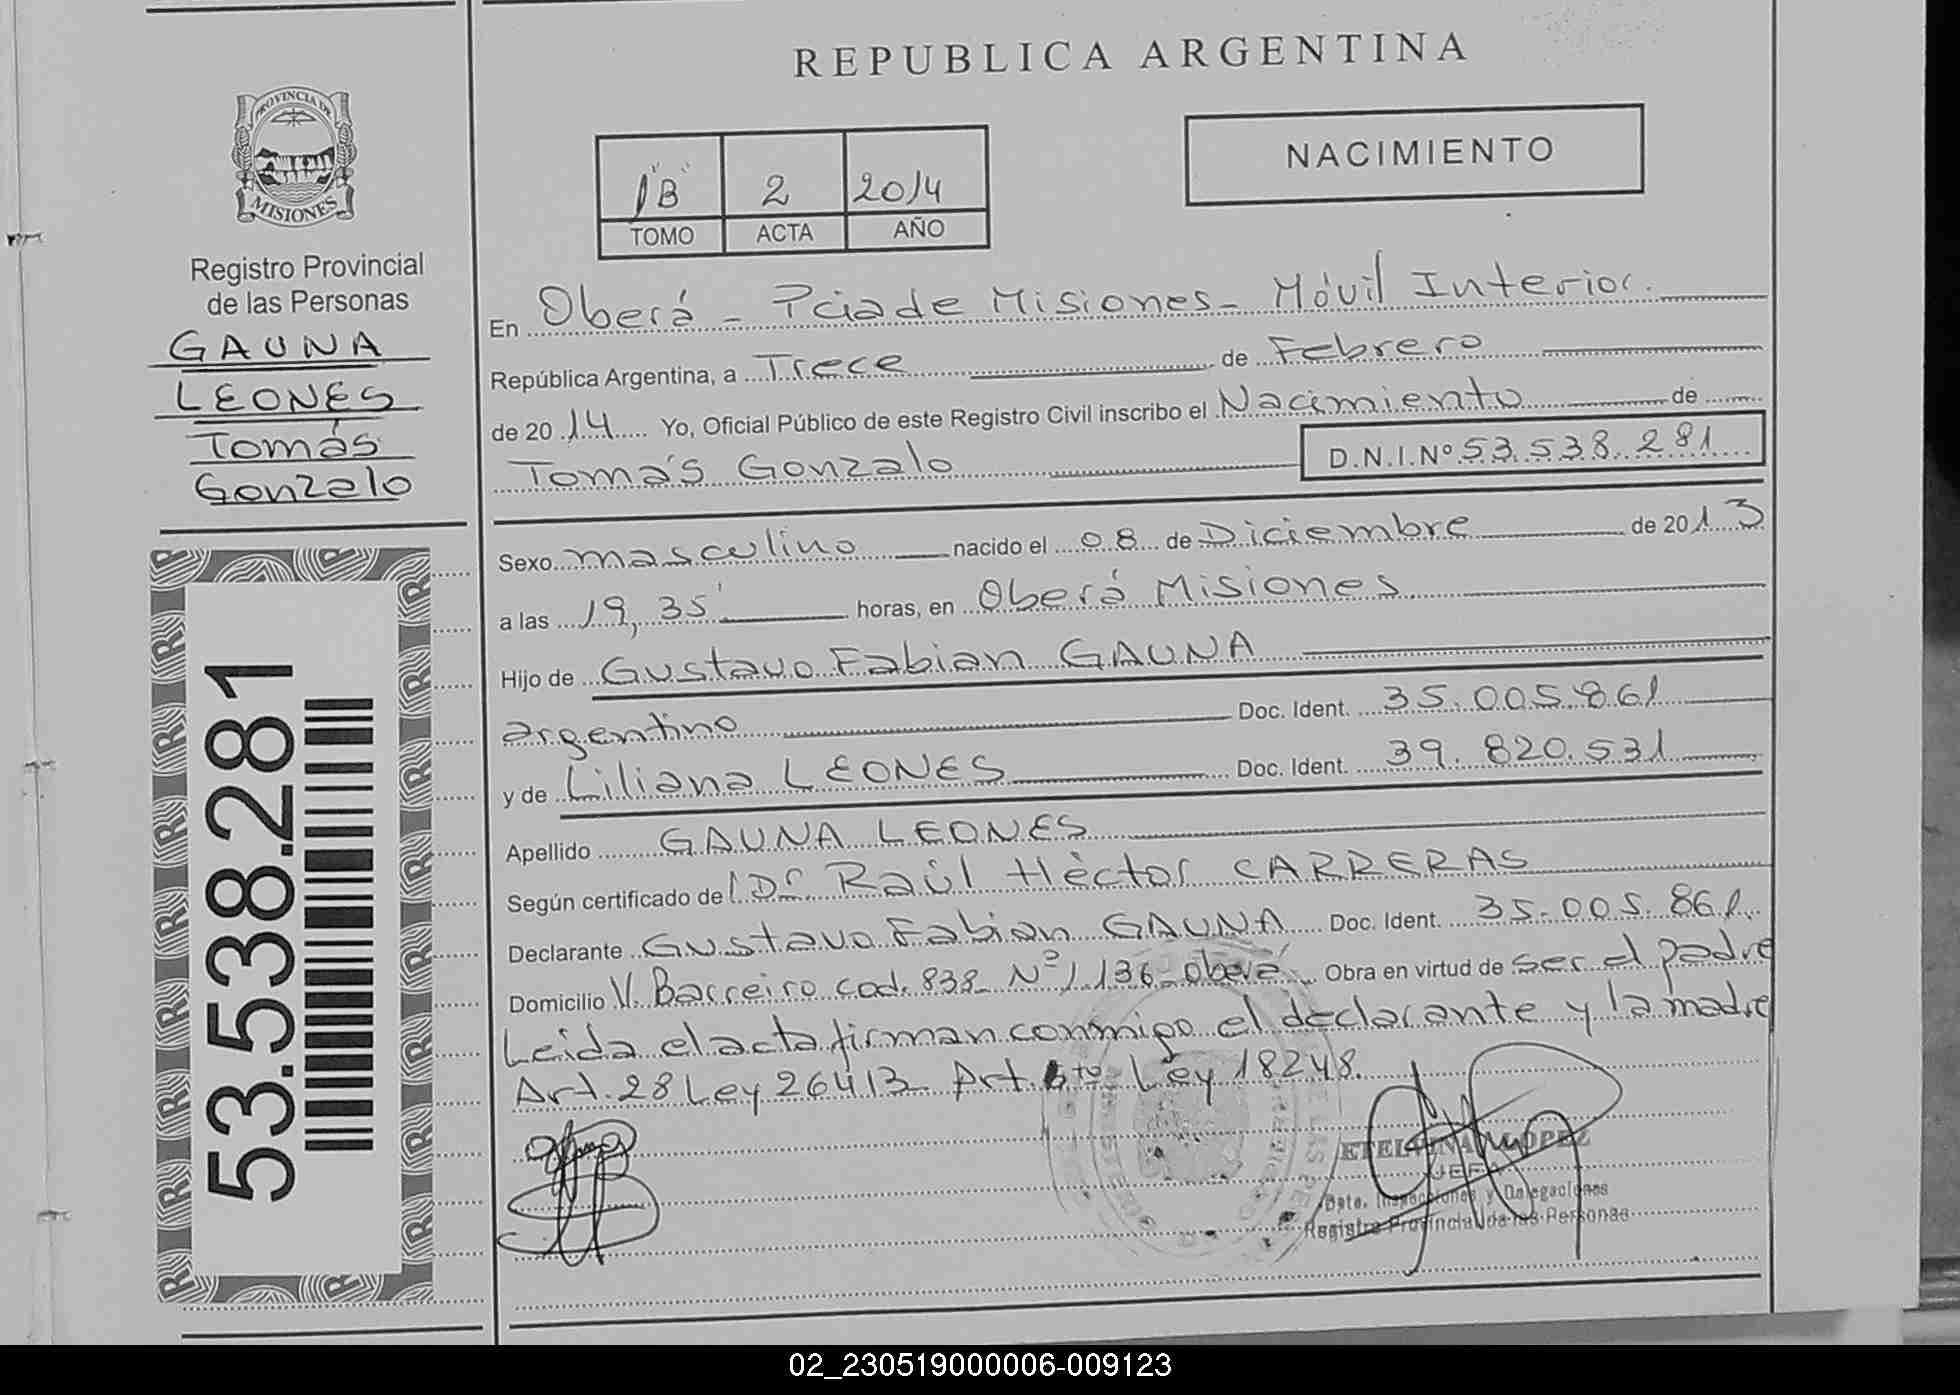 REPUBLICA ARGENTINA
PROVINCIA DE
MISIONES
Registro Provincial
de las Personas
GAUNA
LEONES
Tomás
Gonzalo
53.538.281
1"B" 2 2014
TOMO ACTA AÑO
NACIMIENTO
En Oberá - Pcia de Misiones - Móvil Interior.
República Argentina, a Trece de Febrero
de 2014 Yo, Oficial Público de este Registro Civil inscribo el Nacimiento de
Tomás Gonzalo D.N.I.Nº 53.538.281
Sexo masculino nacido el 08 de Diciembre de 2013
a las 19,35' horas, en Oberá Misiones
Hijo de Gustavo Fabian GAUNA
argentino Doc. Ident. 35.005.861
y de Liliana LEONES Doc. Ident. 39.820.531
Apellido GAUNA LEONES
Según certificado del Dr Raúl Hèctor CARRERAS
Declarante Gustavo Fabian GAUNA Doc. Ident. 35.005.861
Domicilio V. Barreiro cod. 838 Nº 1.136 - Oberá Obra en virtud de ser el padre
Leida el acta firman conmigo el declarante y la madre
Art. 28 Ley 26413 Art. 5to Ley 18248.
ETELVINA LOPEZ
JEFA
Dpto. Inspecciones y Delegaciones
Registro Provincial de las Personas
02_230519000006-009123